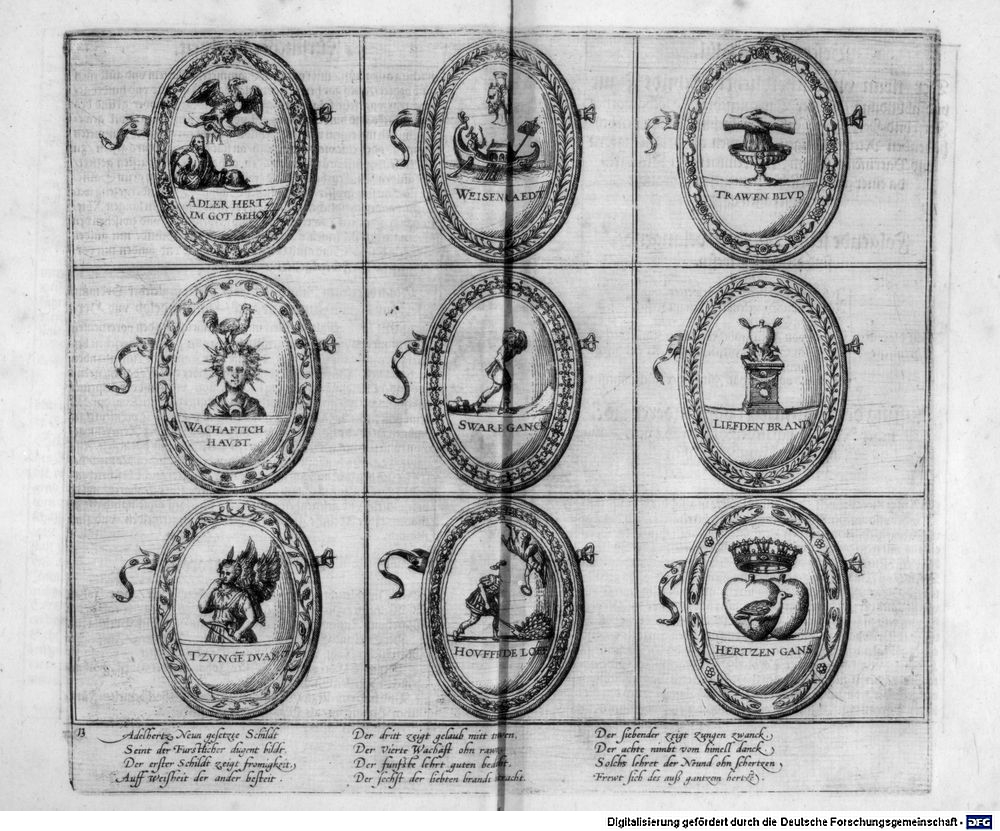 IM
B
ADLER HERTZ
IM GOT BEHOFT
WEISEN RAEDT
TRAWEN BLVD
WACHAFTICH
HAVBT.
SWARE GANCK
LIEFDEN BRAND
TZVNGE DVANG
HOVFFEDE LOEF
HERTZEN GANS
13
Adelhertz Neun gesetzte Schildt
Seint der Furstlicher dugent bildt.
Der erster Schildt zeigt fromigkeit,
Auff Weisheit der ander besteit.
Der dritt zeigt gelaub mitt
Der Vierte Wachaft ohn
Der funfste lehrt guten
Der sechst der liebten brandt
Der siebender zeigt zungen zwanck,
Der achte nimbt vom himell danck.
Solchs lehret der Neund ohn schertzen,
Frewt sich des auß gantzem hertzen.
Digitalisierung gefördert durch die Deutsche Forschungsgemeinschaft - DFG